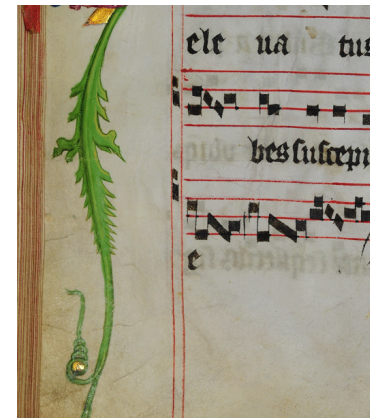 ele ua tus
bes suscepi
e